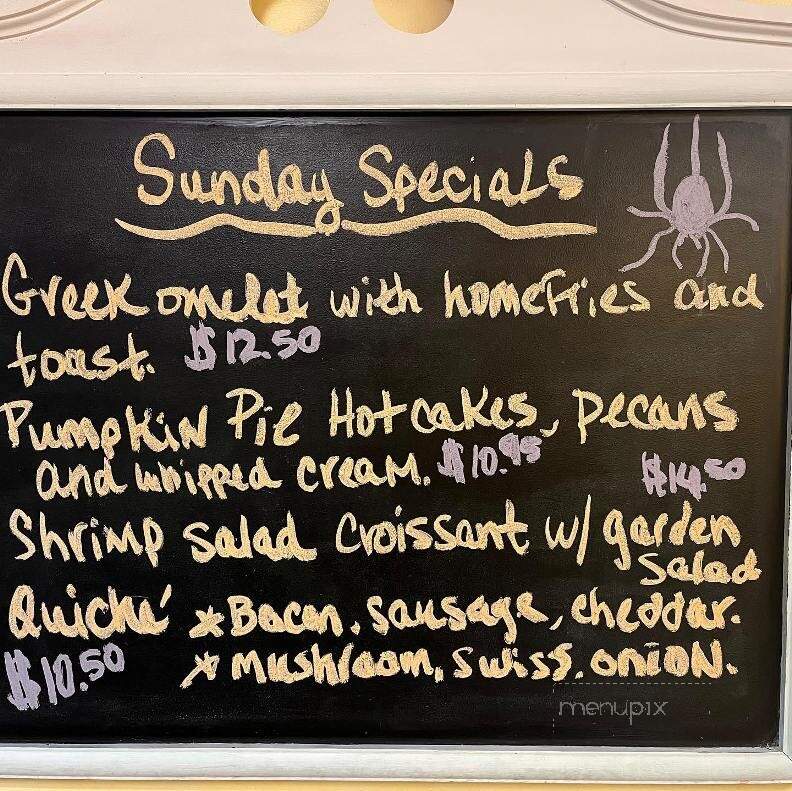 Sunday Specials
Greek omelet with homefries and
toast. $12.50
Pumpkin Pie Hotcakes, pecans
and whipped cream. $10.95
$14.50
Shrimp salad croissant w/ garden
salad
Quiche' *Bacon, sausage, cheddar.
$10.50 *Mushroom, swiss, onion.
menupix